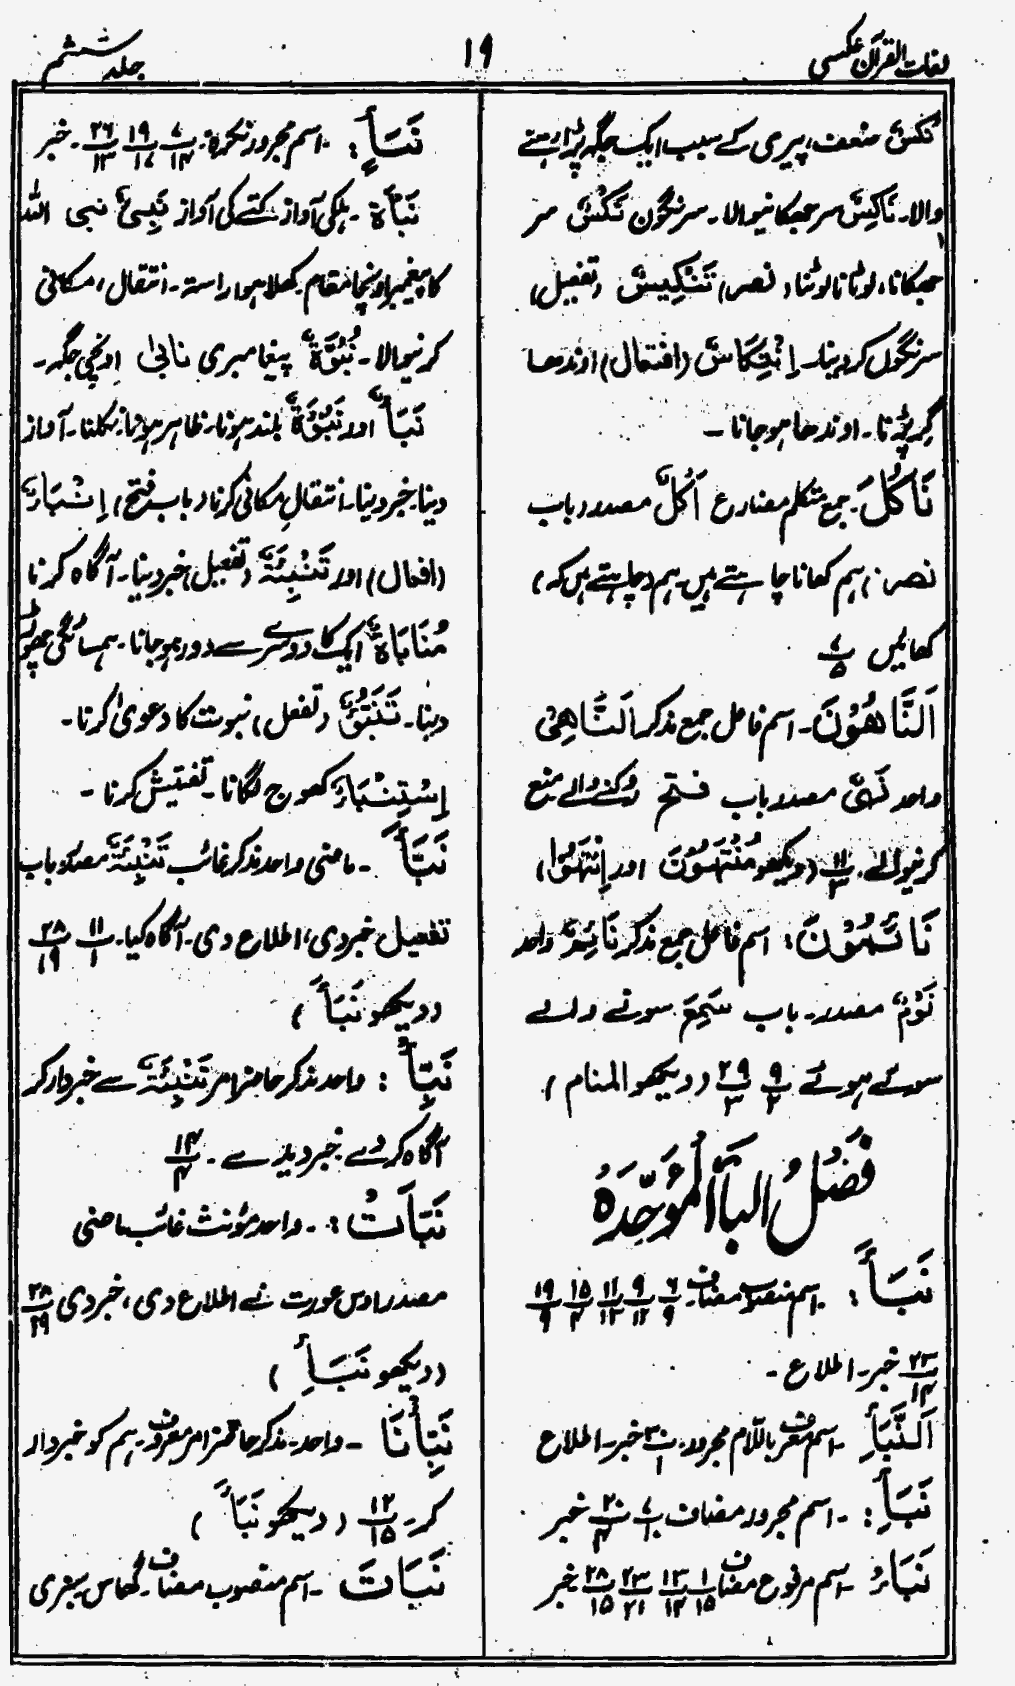 لغات القرآن عکسی
۱۹
جلد ششم
نُکْسٌ ضعف، پیری کے سبب ایک جگہ پڑا رہنے
والا۔ نَاکِسٌ سر جھکانیوالا۔ سرنگوں نَکْسٌ سر
جھکانا، لوٹانا لوٹنا، نصر) تَنْکِیسٌ (تفعیل)
سرنگوں کر دینا۔ اِنْتِکَاسٌ (افتعال) اوندھا
گر پڑنا۔ اوندھا ہو جانا ۔
نَاکُلَ۔ جمع متکلم مضارع اَکْلٌ مصدر باب
نصر ) ہم کھانا چاہتے ہیں۔ ہم (چاہتے ہیں کہ)
کھائیں ۷/۵
اَلنَّاهُوْنَ۔ اسم فاعل جمع مذکر اَلنَّاهِیْ
واحد نَهْیٌ مصدر باب فتح روکنے والے منع
کرنیوالے۔ ۱۱/۳ (دیکھو مُنْتَهُوْنَ اور اِنْتَهَوْا)
نَائِمُوْنَ: اسم فاعل جمع مذکر نَائِمٌ واحد
نَوْمٌ مصدر۔ باب سَمِعَ سونے والے
سوئے ہوئے ۹/۲ ۲۹/۳ (دیکھو المنام)
فَصْلُ الْبَاءِ الْمُوَحَّدَه
نَبَأَ: اسم منصوب مضاف۔ ۶/۹ ۹/۱۲ ۱۱/۱۳ ۱۵/۴ ۱۹/۹
۲۳/۱۴ خبر۔ اطلاع ۔
اَلنَّبَأِ ۔ اسم معرف باللام مجرور۔ ۳۰/۱ خبر۔ اطلاع
نَبَأِ: ۔ اسم مجرور مضاف ۷/۱ ۲۰/۴ خبر
نَبَاءُ ۔ اسم مرفوع مضاف ۱/۱۵ ۱۳/۱۴ ۲۳/۲۱ ۲۸/۱۵ خبر
نَبَأٍ: ۔ اسم مجرور نکرہ۔ ۷/۱۴ ۱۹/۱۷ ۲۶/۱۳۔ خبر
نَبْأَةٌ ۔ ہلکی آواز کتے کی آواز نَبِیٌّ نبی اللہ
کا پیغمبر اونچا مقام کھلا ہوا راستہ۔ انتقال مکانی
کرنیوالا۔ نُبُوَّةٌ پیغامبری نابیٔ اونچی جگہ۔
نَبَأٌ اور نَبُوْءَةٌ بلند ہونا۔ ظاہر ہونا۔ نکلنا۔ آواز
دینا۔ خبر دینا۔ انتقالِ مکانی کرنا (باب فتح) اِنْبَاءٌ
(افعال) اور تَنْبِئَةٌ (تفعیل) خبر دینا۔ آگاہ کرنا
مُنَابَاةٌ ایک کا دوسرے سے دور ہو جانا۔ ہمسائگی چھوڑ
دینا۔ تَنَبُّؤٌ (تفعل) نبوت کا دعویٰ کرنا۔
اِسْتِنْبَاءٌ کھوج لگانا۔ تفتیش کرنا ۔
نَبَّأَ ۔ ماضی واحد مذکر غائب تَنْبِئَةٌ مصدر باب
تفعیل خبر دی، اطلاع دی۔ آگاہ کیا۔ ۱۱/۱ ۲۸/۱۹
(دیکھو نَبَأَ)
نَبِّأْ : واحد مذکر حاضر امر تَنْبِئَةٌ سے خبردار کر
آگاہ کر دے خبر دیدے ۔ ۱۴/۴
نَبَّأَتْ: ۔ واحد مؤنث غائب ماضی
مصدر اس عورت نے اطلاع دی، خبر دی ۲۸/۱۹
(دیکھو نَبَأِ)
نَبِّأْنَا ۔ واحد۔ مذکر حاضر امر معروف۔ ہم کو خبردار
کر۔ ۱۲/۱۵ (دیکھو نَبَأَ)
نَبَاتَ ۔ اسم منصوب مضاف گھاس سبزی